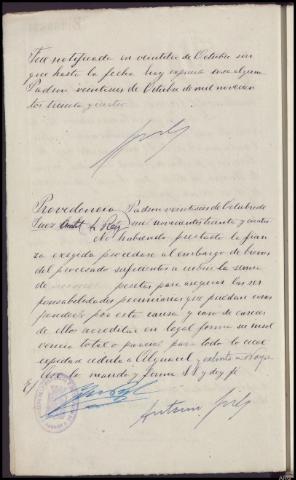 Fue notificado en veintitres de Octubre sin
que hasta la fecha haya expuesto cosa alguna
Padron veintiseis de Octubre de mil novecien
tos treinta y cuatro
Providencia Padron veintiseis de Octubre de
Juez mil novecientos treinta y cuatro
No habiendo prestado la fian
za exigida procedase al embargo de bienes
del procesado suficientes a cubrir la suma
de pesetas para asegurar las res
ponsabilidades pecuniarias que puedan corres
ponderle por esta causa y caso de carecer
de ellos acreditese en legal forma su insol
vencia total o parcial para todo lo cual
expidase cedula al Alguacil
Asi lo mando y firma S.S. y doy fe
Antonio